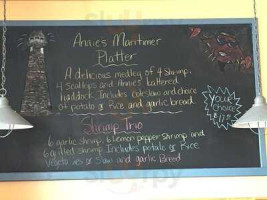 Annies Maritimer
Platter
A delicious medley of 4 Shrimp,
4 Scallops and Annies Battered
haddock. Includes Coleslaw and choice
of potato or Rice and garlic bread.
Your
choice
Shrimp Trio
6 garlic shrimp, 6 lemon pepper shrimp and
6 grilled shrimp. Includes potato or Rice
Vegetables or Slaw and garlic Bread